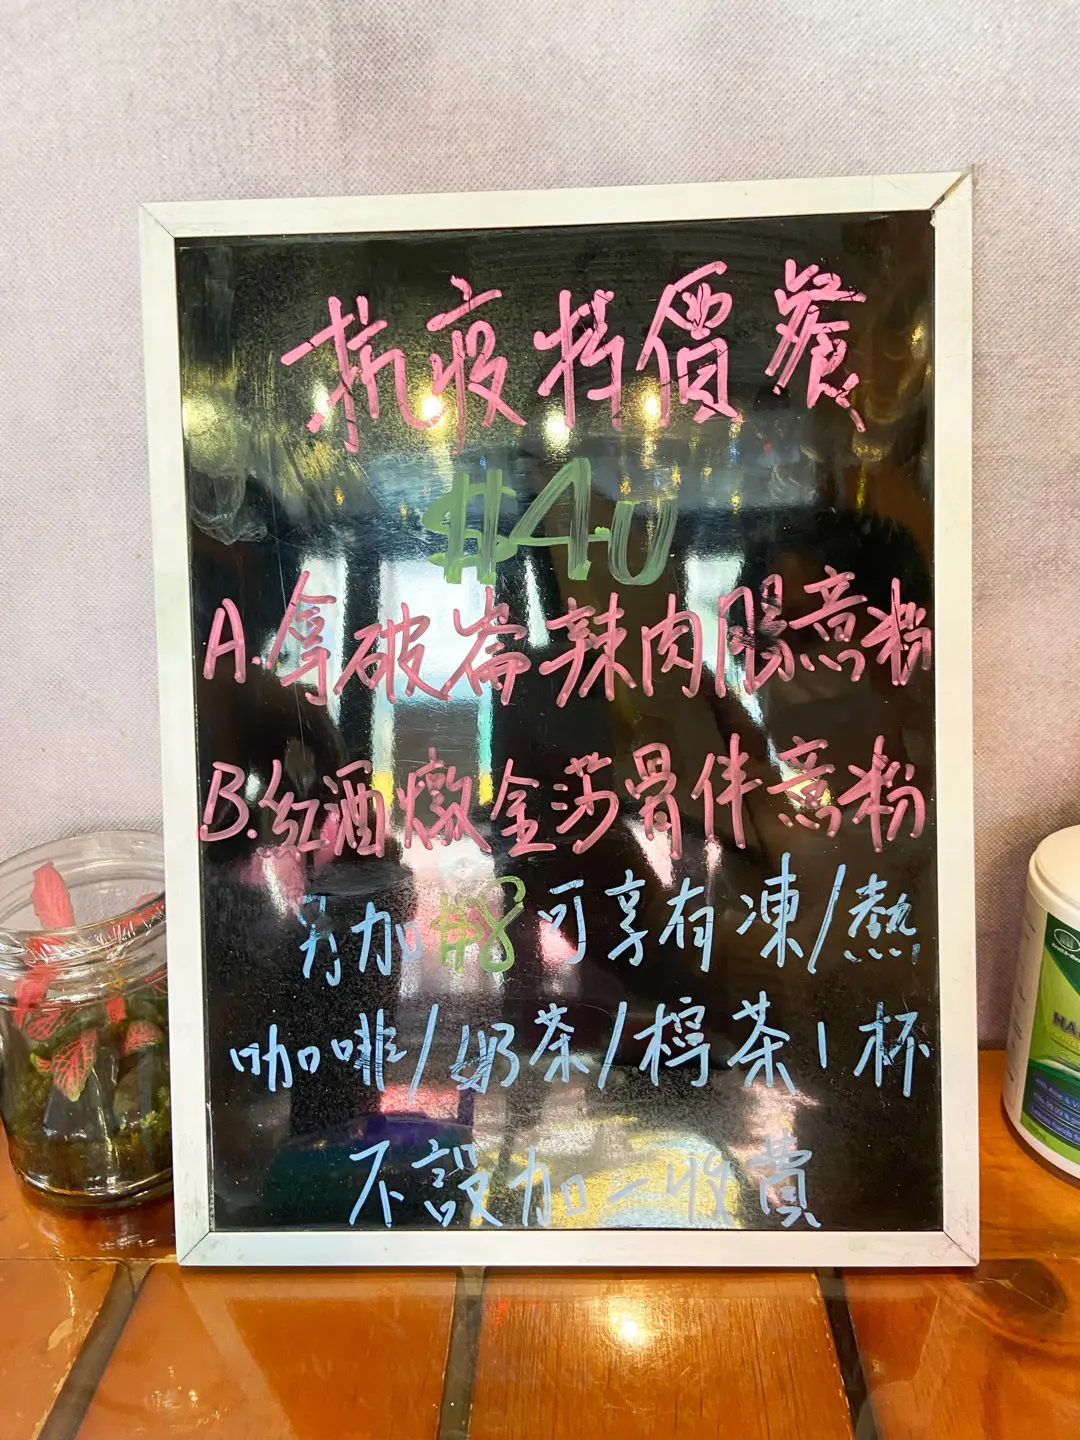 抗疫特價餐
$40
A.拿破崙辣肉腸意粉
B.紅酒燉金莎骨伴意粉
另加$8可享有凍/熱
咖啡/奶茶/檸茶1杯
不設加一收費